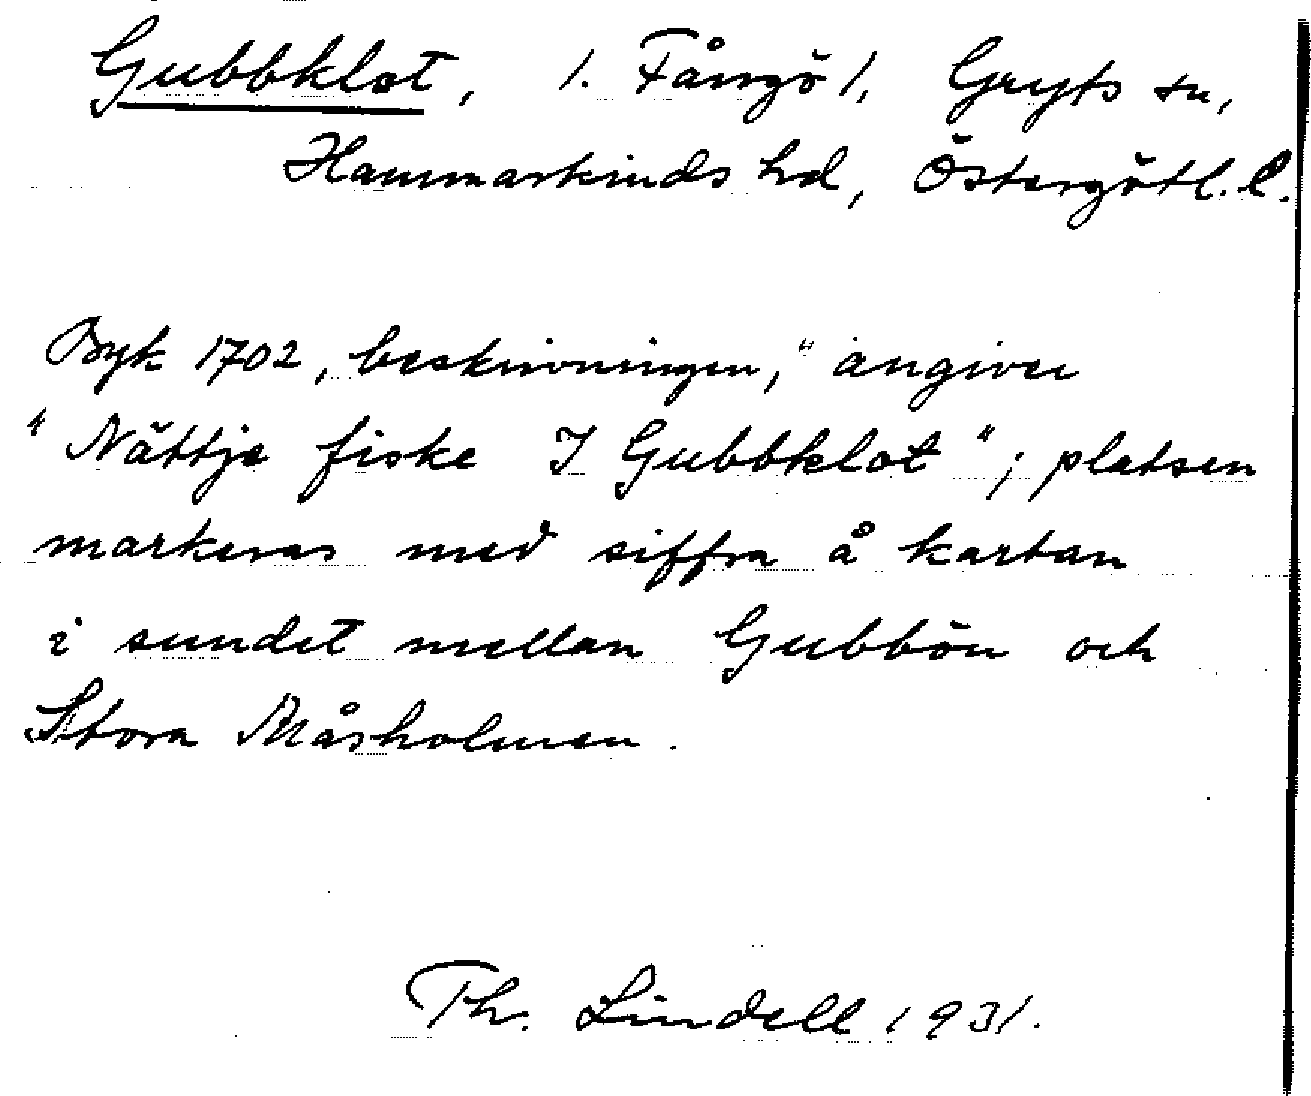 Gubbklot, 1. Fångö 1, Gryts sn,
Hammarkinds hd, Östergötl. l.
Byk 1702, „beskrivningen,“ angiver
“Nättje fiske I Gubbklot“; platsen
markeras med siffra å kartan
i sundet mellan Gubbön och
Stora Måsholmen.
Th. Lindell 1931.